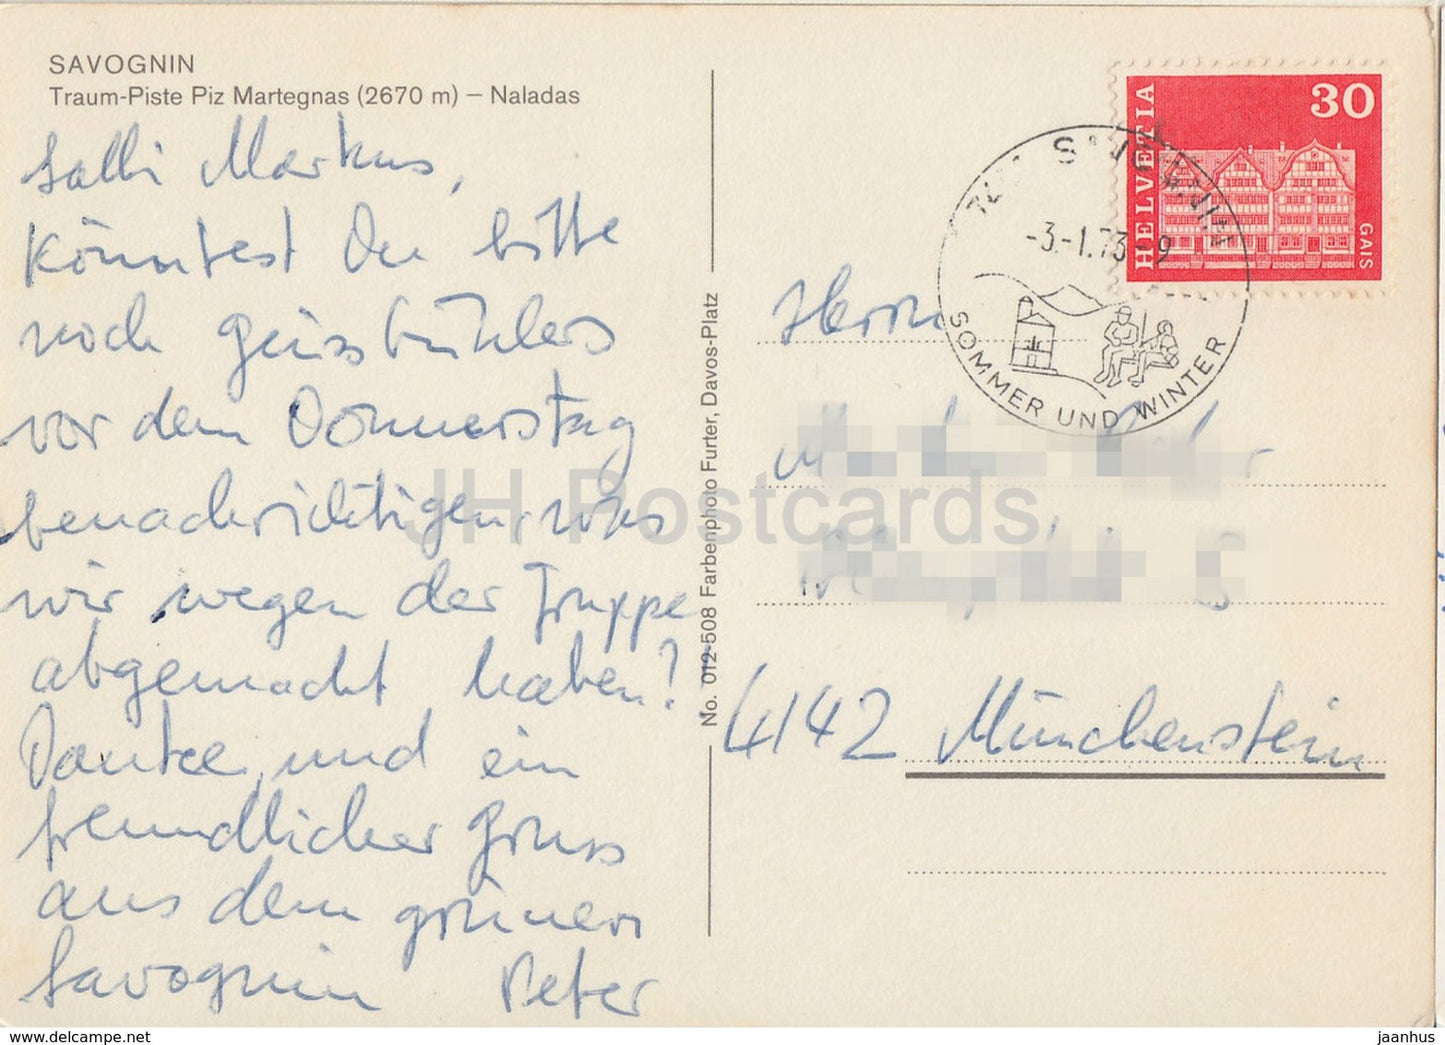 SAVOGNIN
Traum-Piste Piz Martegnas (2670 m) – Naladas
Salli Markus,
Könntest Du bitte
noch Geissbühlers
vor dem Donnerstag
benachrichtigen, was
wir wegen der Truppe
abgemacht haben?
Danke, und ein
freundlicher Gruss
aus dem grünen
Savognin Peter
No. 012-508 Farbenphoto Furter, Davos-Platz
HELVETIA
30
GAIS
SAVOGNIN
-3.-1.73-9
SOMMER UND WINTER
Herrn
4142 Münchenstein
JH Postcards
delcampe.net
jaanhus